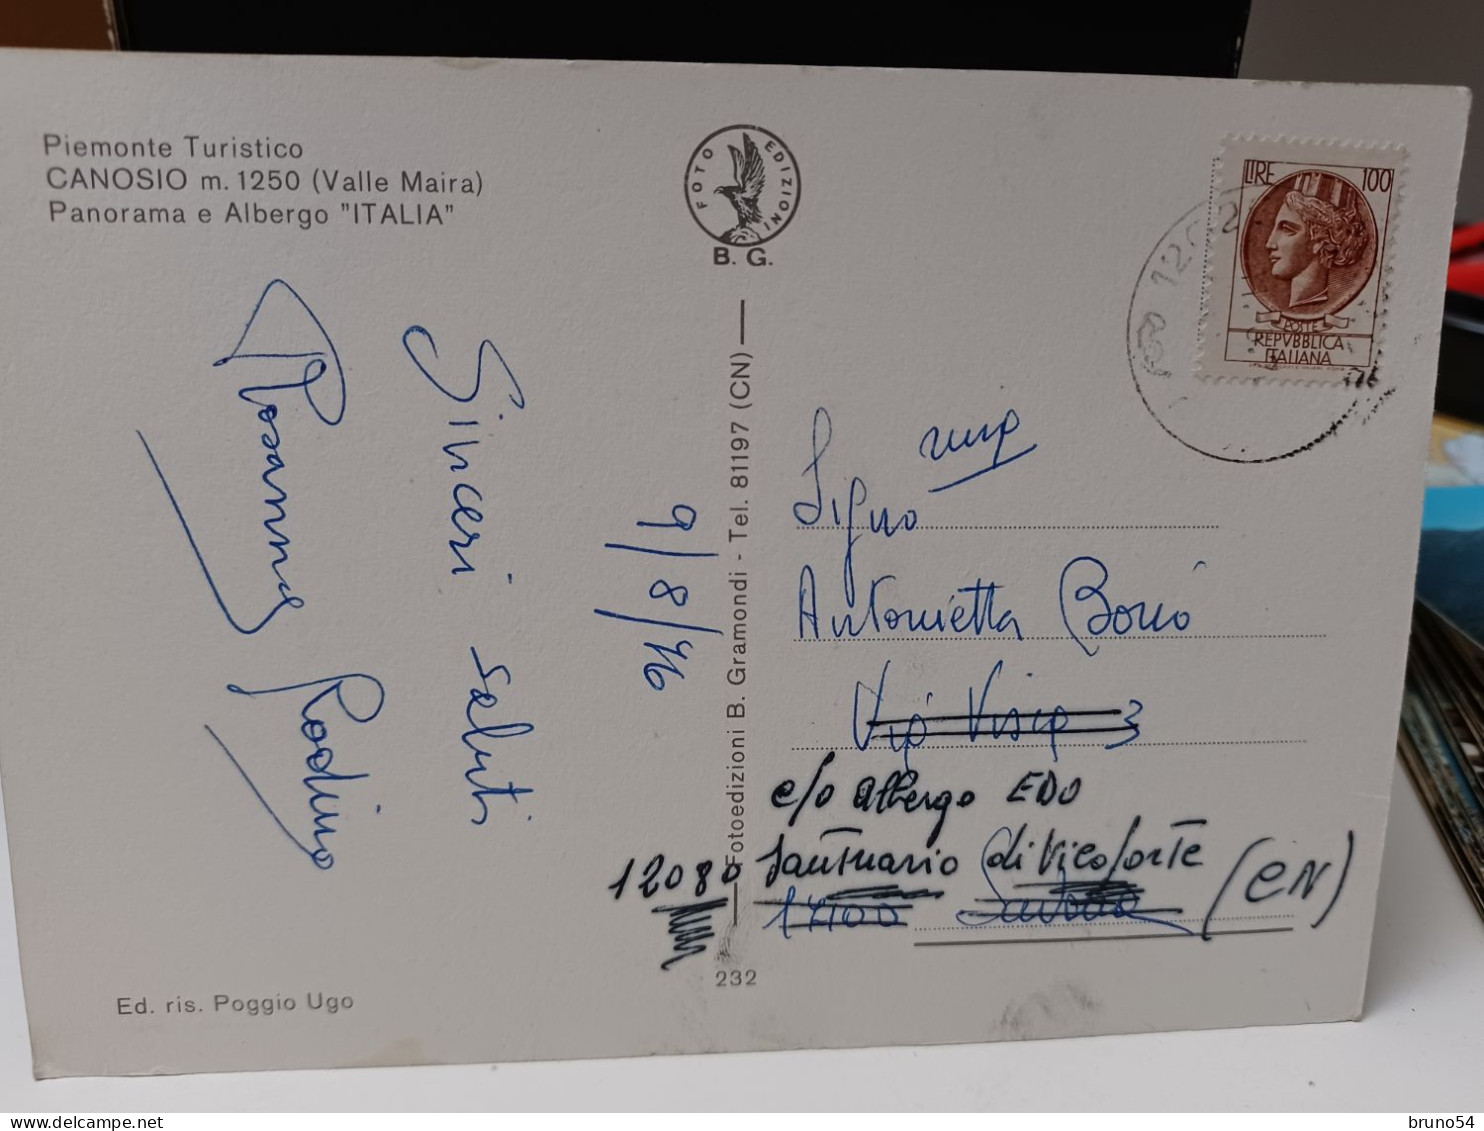 Piemonte Turistico
CANOSIO m. 1250 (Valle Maira)
Panorama e Albergo "ITALIA"
FOTO EDIZIONI
B. G.
LIRE 100
POSTE
REPVBBLICA
ITALIANA
Sinceri saluti
Rosanna Rodino
9/8/76
Fotoedizioni B. Gramondi - Tel. 81197 (CN)
Antonietta
3
c/o Albergo EDO
12080 Santuario di Vicoforte (CN)
17100 Savona
232
Ed. ris. Poggio Ugo
bruno54